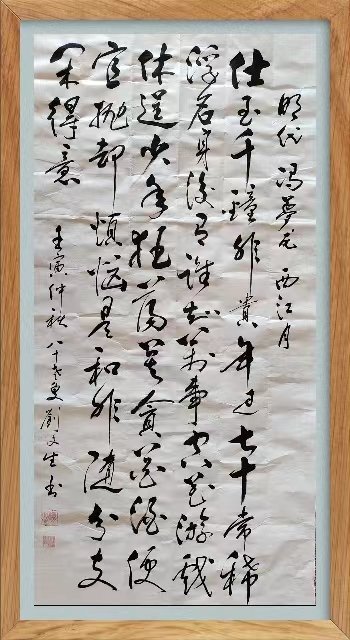 明代 冯梦龙 西江月
仕至千鐘非貴年过七十常稀
浮名身後有谁知萬事空花游戲
休逞少年狂荡莫貪花酒便
宜抛却煩惱是和非随分安
闲得意
壬寅仲秋八十老叟劉文生书